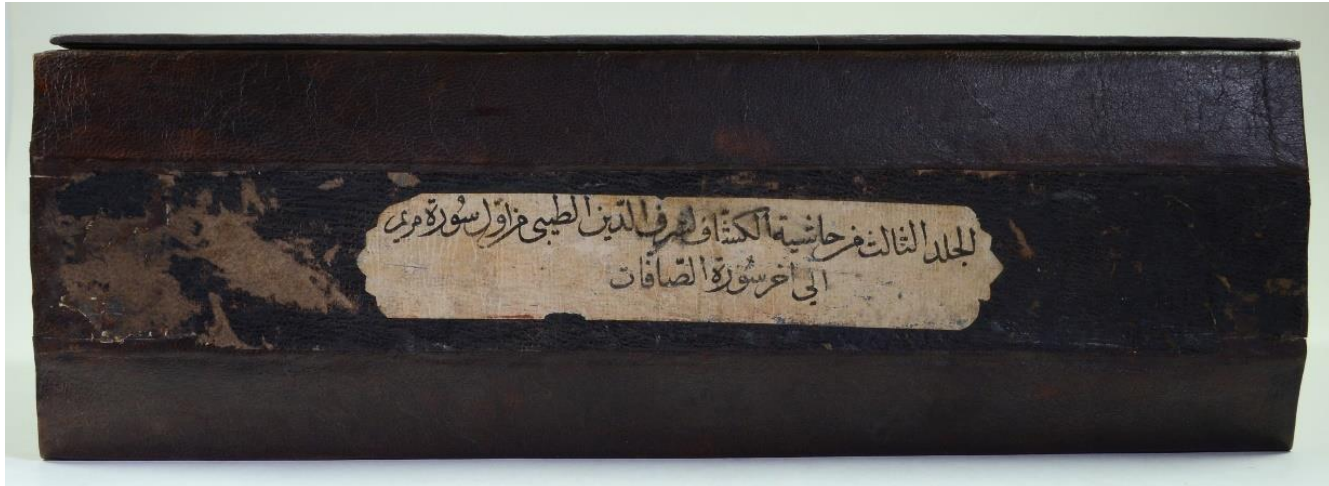 الجلد الثالث من حاشية الكشاف لشرف الدين الطيبي من اول سورة مريم
الى آخر سورة الصافات